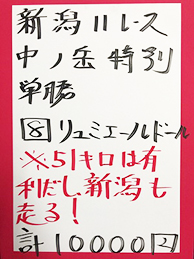 新潟11レース
中ノ岳特別
単勝
8 リュミエールドール
※51キロは有
利だし新潟も
走る!
計10000円